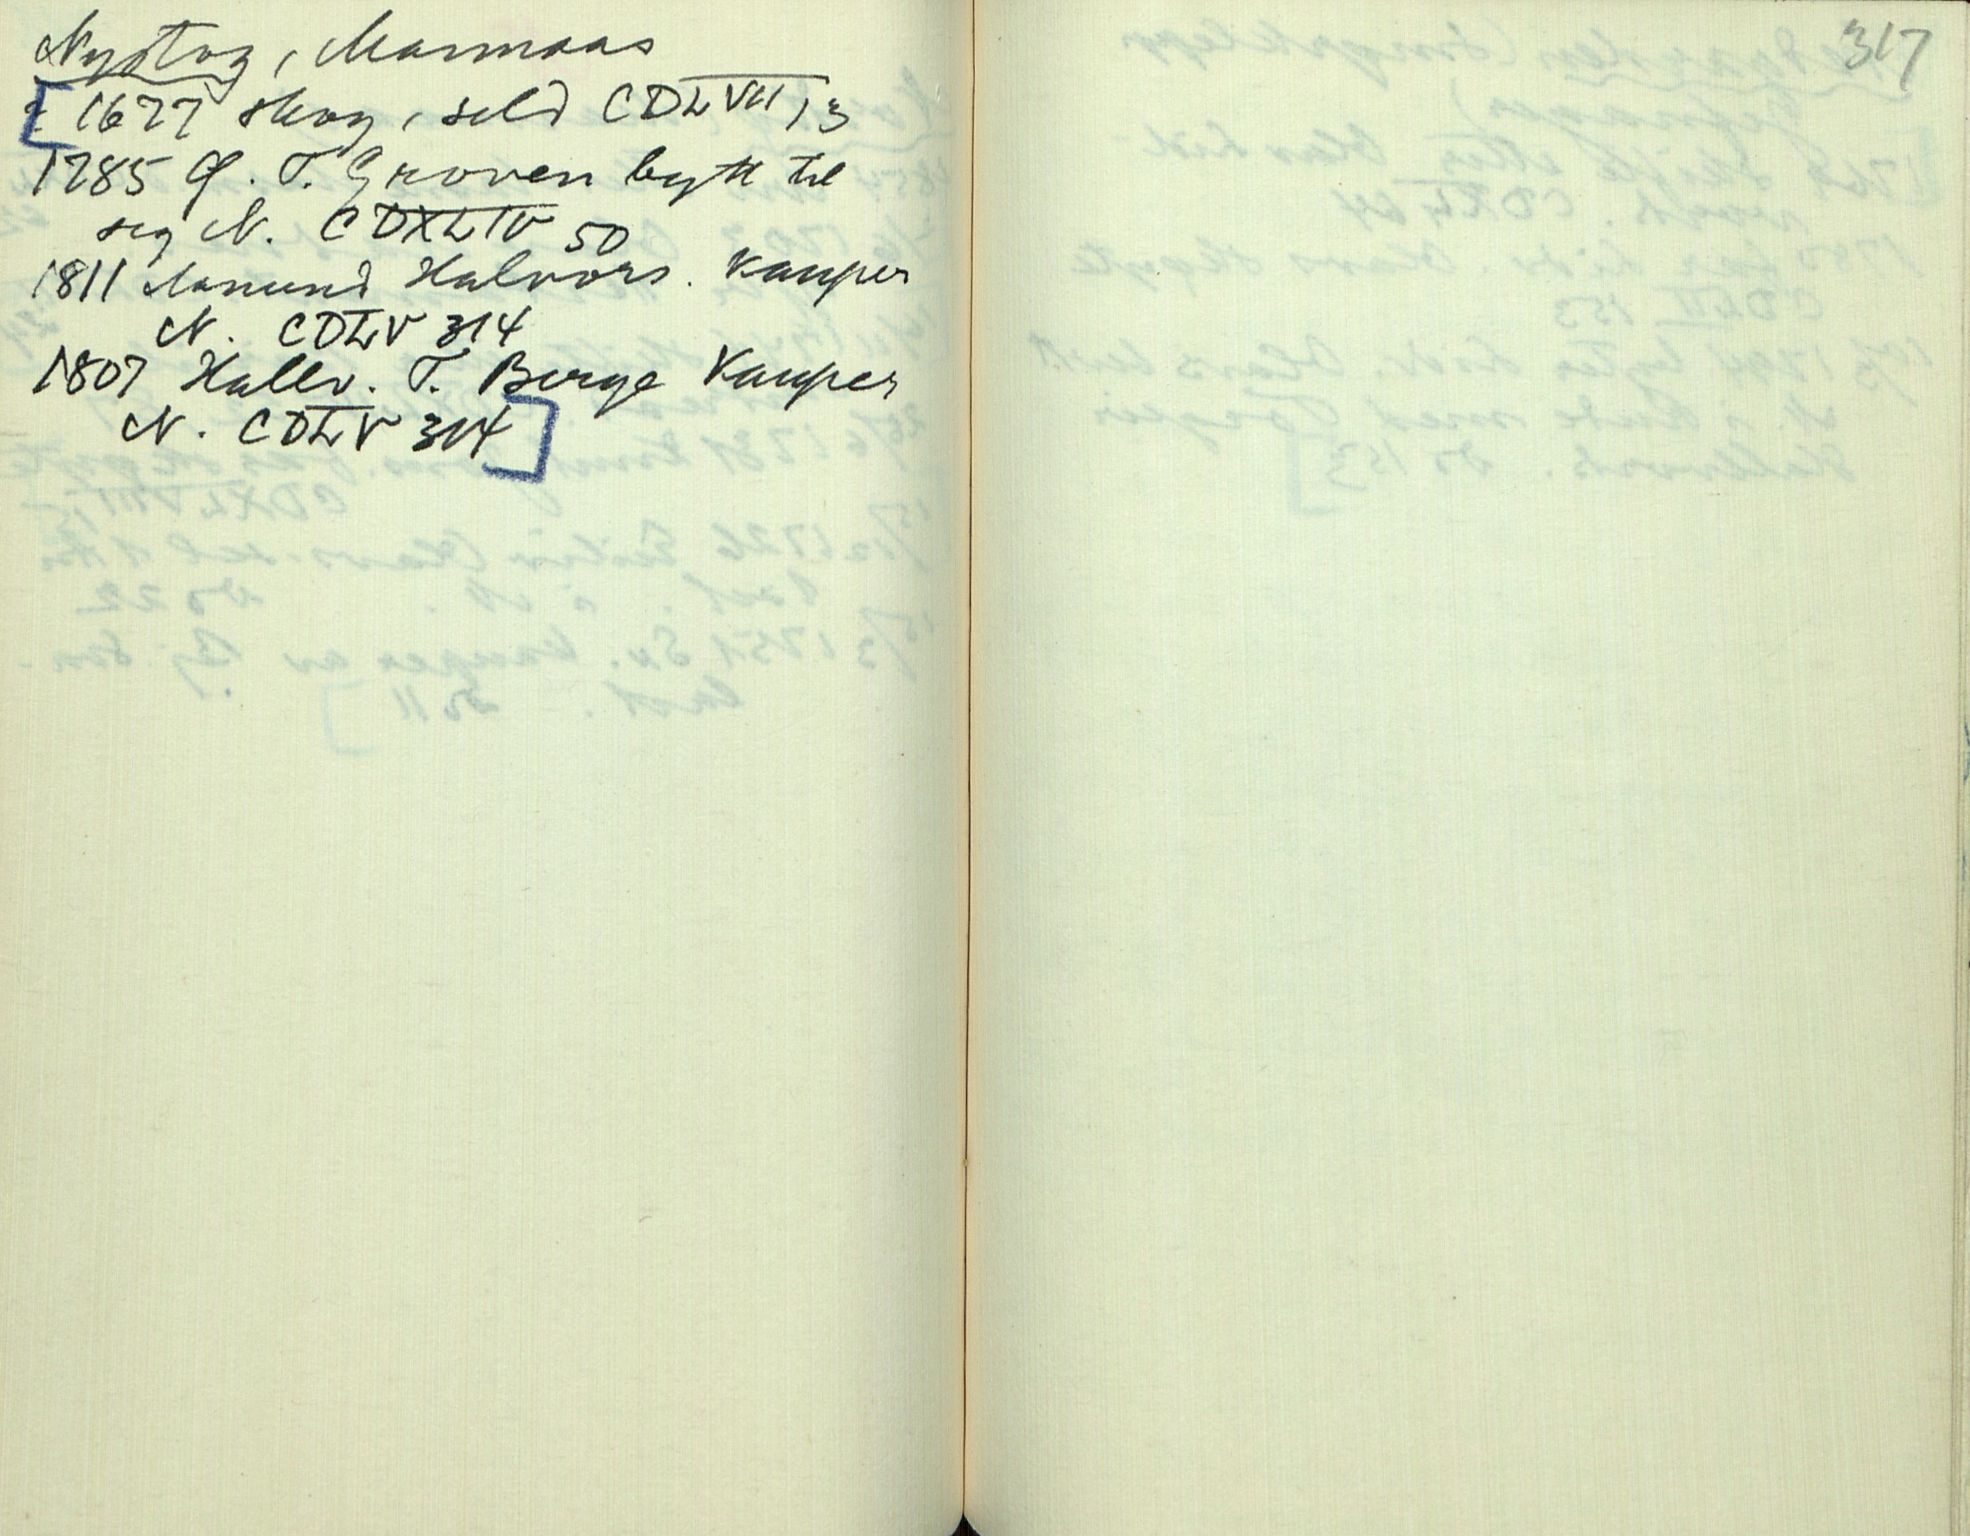 Nystog, Mannaas
1677 skog, seld CDLVIII, 3
1785 Ø. T. Groven bytt til
seg N. CDXLIV 50
1811 Aamund Halvors. kauper
N. CDLV 314
1807 Hallv. T. Berge kauper
N. CDLV 314
317